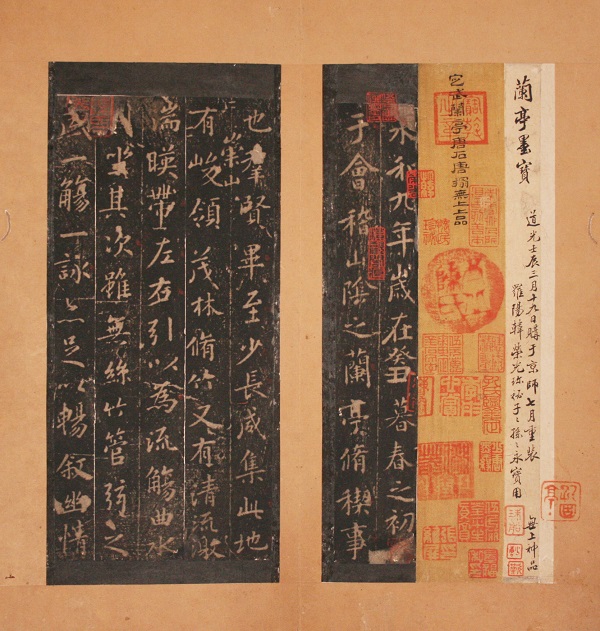 蘭亭墨寶
道光壬辰三月十九日購于京師七月重裝
羅陽韓榮光珍祕子〻孫〻永寶用
無上神品
定武蘭亭唐石唐搨無上上品
永和九年歲在癸丑暮春之初
于會稽山陰之蘭亭脩稧事
也羣賢畢至少長咸集此地
崇山
有峻領茂林脩竹又有清流激
湍暎帶左右引以為流觴曲水
列坐其次雖無絲竹管弦之
盛一觴一詠亦足以暢敘幽情